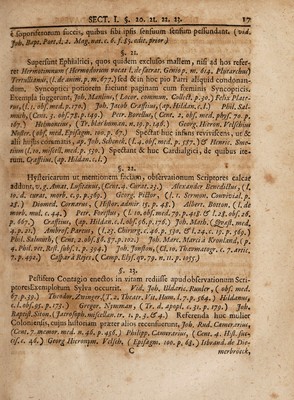 SECT. I. §. 10. 11. 12. 13. 17
è soporferantum succis, quibus sibi ipsis sensuum sensum pessundant. (vid.
Joh. Bapt. Port. l. 2. Mag. nat. c. 6. f. 85. edit. prior.)
§. 11.
Supersunt Ephialtici, quos quidem exclusos mallem, nisi ad hos refer-
ret Hermotimum (Hermodorum vocat l. de Socrat. Genio p. m. 614. Plutarchus)
Tertullianus, (l. de anim. p. m. 677.) sed & in hoc pio Patri aliquid condonan-
dum. Syncoptici potiorem faciunt paginam cum foeminis Syncopticis.
Exempla suggerunt, Joh. Manlius, (Locor. commun. Collect. p. 30.) Felix Plate-
rus, (l. 1. obs. med. p. 170.) Joh. Jacob. Crafftius, (ap. Hildan. c. l.) Phil. Sal-
muth, (Cent. 3. obs. 78. p. 149.) Petr. Borellus, (Cent. 2. obs. med. phys. 70. p.
167.) Hajenmüller, (Tr. bleed wenden. n. 15. p. 196.) Georg. Hieron. Velschius
Noster. (obs. med. Episagm. 100. p. 67.) Spectat huc infans reviviscens, ut &
alii hujus commatis, ap. Joh. Schenck. (l. 4. obs. med. p. 587.) & Henric. Smec-
tium, (10. miscell. med. p. 550.) Spectant & huc Cardialgici, de quibus ite-
rum. Crafftius, (ap. Hildan. c. l.)
§. 12.
Hystericarum ut mentionem faciam, observationum Scriptores calcar
addunt, v. g. Amat. Lusitanus, (Cent. 4. Curat. 23.) Alexander Benedictus, (l.
10. d. curat. morb. c. 9. p. 369.) Georg. Pictor. (l. 1. Sermon. Convivial. p.
25.) Dioned. Cornarus, (Histor. admir. 15. p. 45.) Albert. Botton. (l. d.
morb. mul. c. 44.) Petr. Forestus (l. 10. obs. med. 79. p. 418. & l. 28. obs. 26.
p. 167.) Crafftius, (ap. Hildan. c. l. obs. 96. p. 176.) Joh. Math. (Quæst. med.
4. p. 21.) Ambros. Pareus, (l. 23. Chirurg. c. 46. p. 530. & l. 24. c. 15. p. 563.)
Phil. Salmuth, (Cent. 2. obs. 86. 57. p. 102.) Joh. Marc. Marci à Kronland, (p.
4. Phil. vet. Rest. sub s. 1. p. 354.) Joh. Jonston, (Cl. 10. Thavmatogr. c. 7. artic.
7. p. 492.) Caspar à Rejes, (Camp. Elys. qu. 79. n. 11. p. 1055.)
§. 13.
Pestifero Contagio enectos in vitam rediisse apud observationum Scri-
ptores Exemplorum Sylva occurrit. Vid. Job. Hildani, Runler, (obs. med.
67. p. 39.) Theodor. Zvinger, (T. 2. Theatr. Vit. Hum. l. 7. p. 564.) Hildanus,
c. l. obs. 95. p. 171.) Gregor. Nymman, (Tr. d. apopl. c. 31. p. 179.) Joh.
Baptist. Siton. (Iatrosoph. miscellan. tr. 1. p. 3. & 4.) Referenda huc mulier
Coloniensis, cujus historiam præter alios recenserunt, Joh. Rud. Camerarius,
(Cent. 7. memor. med. n. 46. p. 456.) Philipp. Camerarius, (Cent. 4. Hist. suc-
cis. c. 46.) Georg. Hieronym. Velsch. (Episagm. 100. p. 68.) Isbrand. de Die-
C merbröeck,